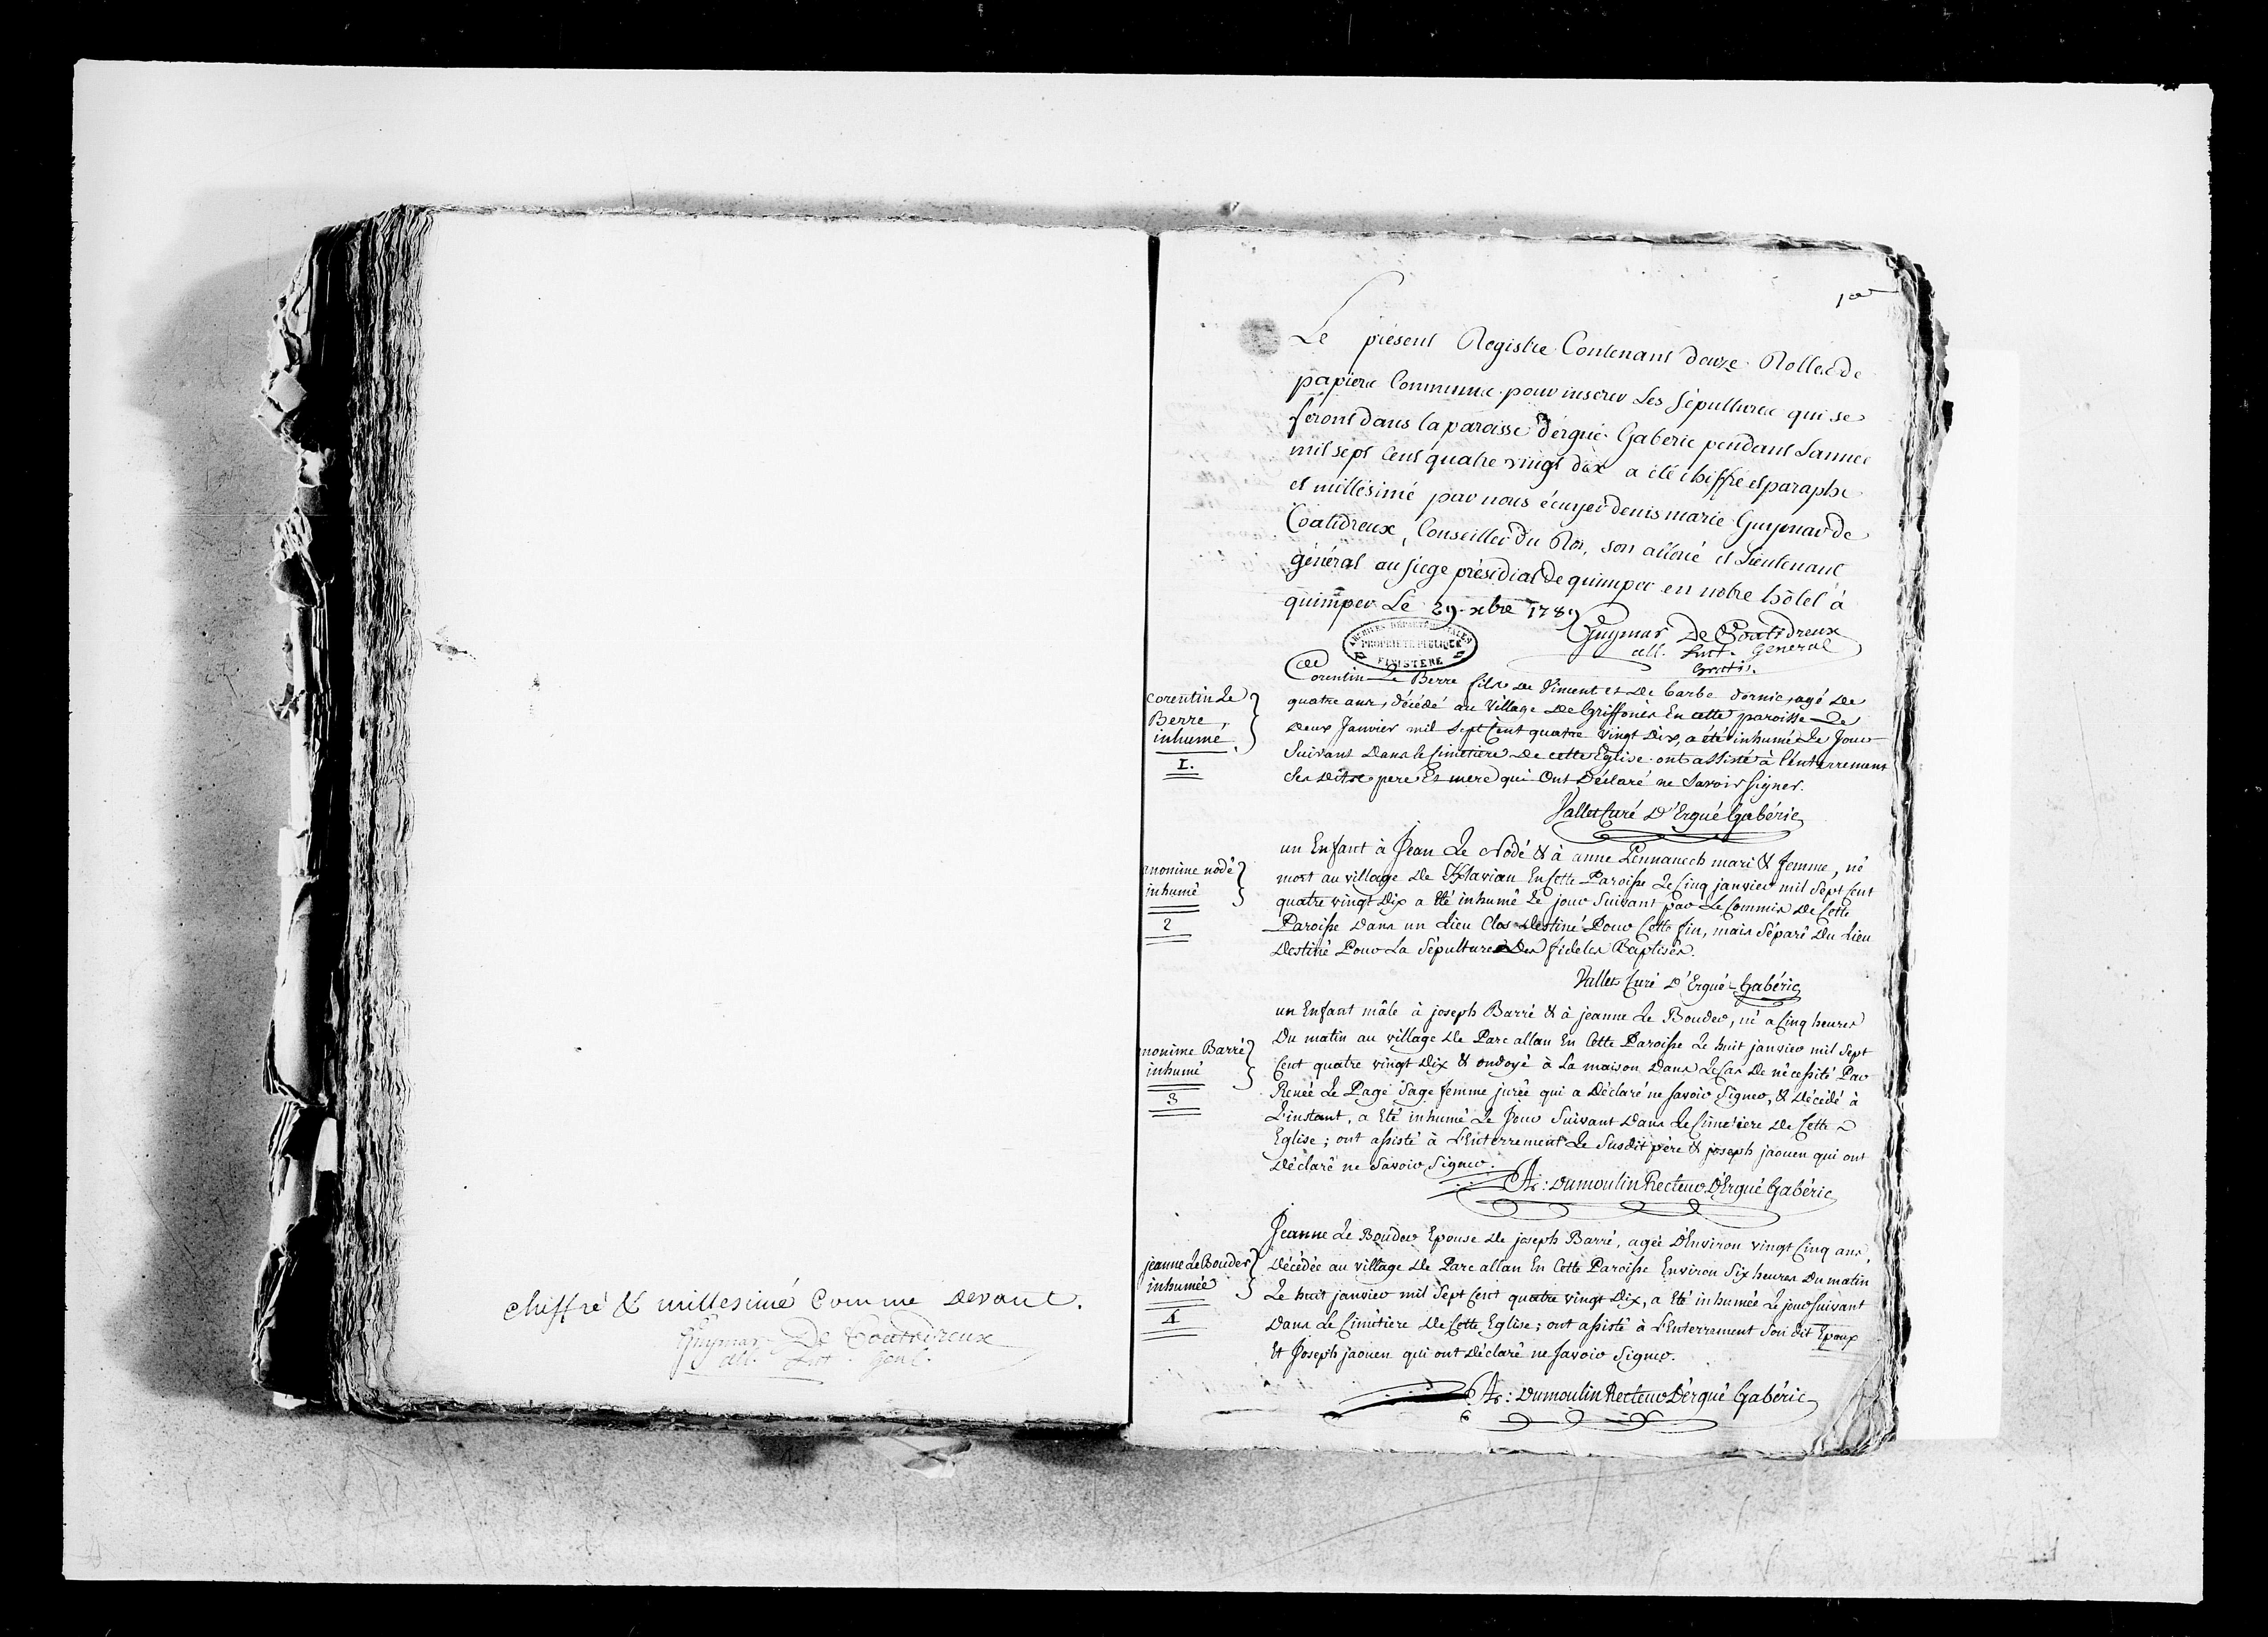 chiffré & millesimé Comme devant.
Guymar De Coatidreux
all. Lnt. Genl.
1er
Le présent Registre Contenant douze Rolles de
papiers Communs pour inserer Les sépultures qui se
feront dans la paroisse d'ergué Gaberic pendant L'année
mil sept Cent quatre vingt dix a été chiffré et paraphé
et millésimé par nous écuyer denis marie Guymar de
Coatidreux, Conseiller du Roi, son alloué et Lieutenant
général au siege présidial de quimper en notre hôtel à
quimper Le 29 xbre 1789
Guymar De Coatidreux
all. Lnt. General
Gratis.
ARCHIVES DÉPARTEMENTALES
PROPRIÉTÉ PUBLIQUE
FINISTÈRE
corentin Le
Berre,
inhumé.
1.
Corentin Le Berre fils de Vincent et de barbe agé de
quatre ans, décédé au Village de Griffonés En cette paroisse Le
deux Janvier mil Sept Cent quatre vingt dix, a été inhumé Le Jour
Suivant Dans le Cimetiere de cette Eglise ont assisté à l'enterrement
Ses dits pere Et mere qui Ont Déclaré ne Savoir Signer.
Vallet Curé D'Ergué Gabéric
anonime nodé
inhumé
2
un Enfant à Jean Le Nodé & à anne Pennanech mari & femme, né
mort au village de En Cette Paroisse Le Cinq janvier mil Sept Cent
quatre vingt Dix a Eté inhumé Le jour Suivant par Le Commis De Cette
Paroisse Dans un Lieu Clos Destiné Pour Cette fin, mais Séparé Du Lieu
Destiné Pour La Sépulture Des fideles Baptisés.
Vallet Curé D'Ergué-Gabéric
anonime Barré
inhumé
3
un Enfant mâle à joseph Barré & à jeanne Le Bouder, né a Cinq heures
Du matin au village De Parc allan En Cette Paroisse Le huit janvier mil Sept
Cent quatre vingt Dix & ondoyé à La maison Dans Le Cas De nécessité Par
Renée Le Page Sage femme jurée qui a Déclaré ne Savoir Signer, & Décédé à
L'instant, a Eté inhumé Le Jour Suivant Dans Le Cimetiere De Cette
Eglise; ont assisté à L'Enterrement Le Susdit père & joseph jaouen qui ont
Déclaré ne Savoir Signer.
A: Dumoulin Recteur D'Ergué Gabéric
jeanne Le Bouder
inhumée
4
Jeanne Le Bouder Epouse De joseph Barré, agée D'Environ vingt Cinq ans,
Décédée au village De Parc allan En Cette Paroisse Environ Six heures Du matin
Le huit janvier mil Sept Cent quatre vingt Dix, a Eté inhumée Le jour Suivant
Dans Le Cimitière De Cette Eglise; ont assisté à L'Enterrement Son dit Epoux
Et Joseph jaouen qui ont Déclaré ne Savoir Signer.
A: Dumoulin Recteur D'érgué Gabéric